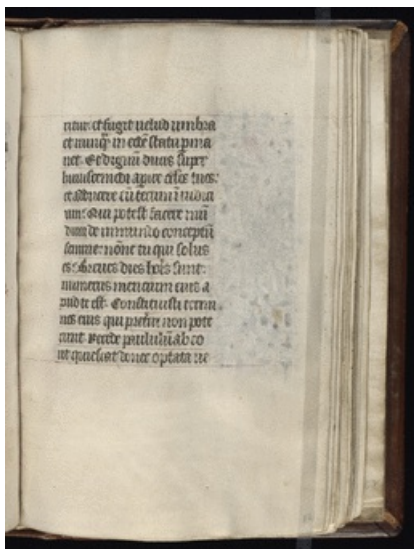 ritur. et fugit uelud umbra
et nunq̄ in eodē statu p̄ma
net. Et dignū ducis super
huiuscemodi apire oclos tuos.
et adducere eū tecum ī iudici
um. Quis potest facere mū
dum de inmundo conceptū
semine: nōne tu qui solus
es. Breues dies hoīs sunt.
numerus mensium eius a
pud te est. Constituisti termi
nos eius qui preīri non pote
runt. Recede paululū ab eo
ut quiescat donec optata ue